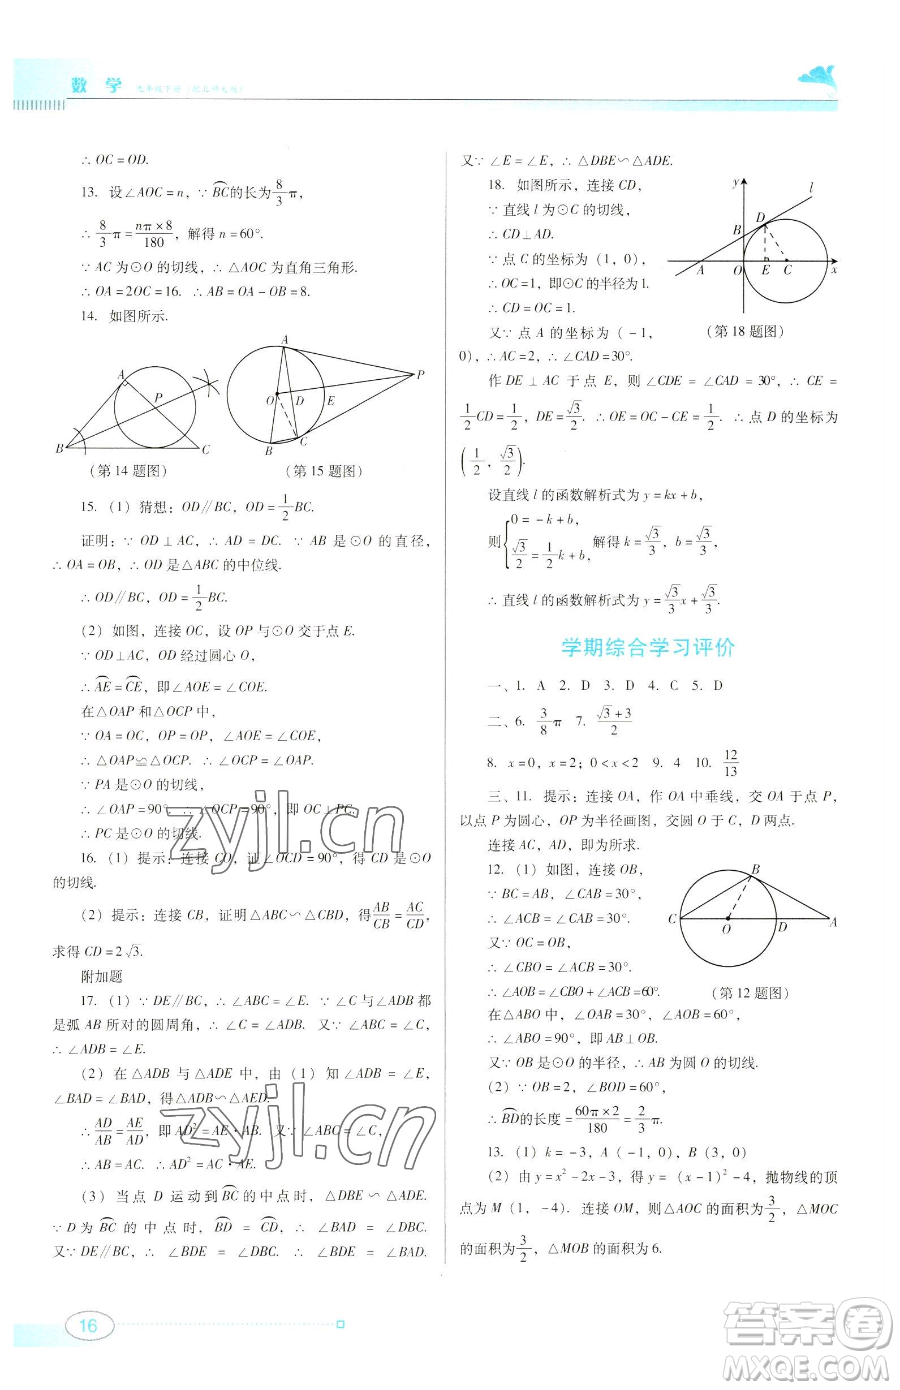 数 学 九年级下册（配北师大版）
∴ OC = OD.
13. 设∠AOC = n，∵ BC的长为8/3 π，
∴ 8/3 π = nπ×8/180，解得 n = 60°.
∵ AC 为⊙O 的切线，∴ △AOC 为直角三角形.
∴ OA = 2OC = 16. ∴ AB = OA − OB = 8.
14. 如图所示.
A P B C
（第 14 题图）
A P O D E B C
（第 15 题图）
15. （1）猜想：OD∥BC，OD = 1/2 BC.
证明：∵ OD ⊥ AC，∴ AD = DC. ∵ AB 是⊙O 的直径，
∴ OA = OB，∴ OD 是△ABC 的中位线.
∴ OD∥BC，OD = 1/2 BC.
（2）如图，连接 OC，设 OP 与⊙O 交于点 E.
∵ OD⊥AC，OD 经过圆心 O，
∴ AE = CE，即∠AOE = ∠COE.
在△OAP 和△OCP 中，
∵ OA = OC，OP = OP，∠AOE = ∠COE，
∴ △OAP≌△OCP. ∴ ∠OAP = ∠OCP.
∵ PA 是⊙O 的切线，
∴ ∠OAP = 90°. ∴ ∠OCP = 90°，即 OC⊥PC.
∴ PC 是⊙O 的切线.
16. （1）提示：连接 CO，证∠OCD = 90°，得 CD 是⊙O
的切线.
（2）提示：连接 CB，证明△ABC∽△CBD，得AB/CB = AC/CD，
求得 CD = 2√3.
附加题
17. （1）∵ DE∥BC，∴ ∠ABC = ∠E. ∵ ∠C 与∠ADB 都
是弧 AB 所对的圆周角，∴ ∠C = ∠ADB. 又∵ ∠ABC = ∠C，
∴ ∠ADB = ∠E.
（2）在△ADB 与△AED 中，由（1）知∠ADB = ∠E，
∠BAD = ∠BAD，得△ADB∽△AED.
∴ AD/AB = AE/AD，即 AD² = AE·AB. 又∵ ∠ABC = ∠C，
∴ AB = AC. ∴ AD² = AC·AE.
（3）当点 D 运动到BC的中点时，△DBE∽△ADE.
∵ D 为 BC 的中点时，BD = CD，∴ ∠BAD = ∠DBC.
又∵ DE∥BC，∴ ∠BDE = ∠DBC. ∴ ∠BDE = ∠BAD.
又∵ ∠E = ∠E，∴ △DBE∽△ADE.
18. 如图所示，连接 CD，
∵ 直线 l 为⊙C 的切线，
∴ CD⊥AD.
∵ 点 C 的坐标为（1，0），
∴ OC = 1，即⊙C 的半径为 1.
∴ CD = OC = 1.
又∵ 点 A 的坐标为（−1，
0），∴ AC = 2，∴ ∠CAD = 30°.
y l D B A O E C x
（第 18 题图）
作 DE⊥AC 于点 E，则∠CDE = ∠CAD = 30°，∴ CE =
1/2 CD = 1/2，DE = √3/2. ∴ OE = OC − CE = 1/2. ∴ 点 D 的坐标为
(1/2，√3/2).
设直线 l 的函数解析式为 y = kx + b，
则{0 = −k + b，√3/2 = 1/2 k + b，解得 k = √3/3，b = √3/3.
∴ 直线 l 的函数解析式为 y = √3/3 x + √3/3.
学期综合学习评价
一、1. A 2. D 3. D 4. C 5. D
二、6. 3/8 π 7. (√3+3)/2
8. x = 0，x = 2；0 < x < 2 9. 4 10. 12/13
三、11. 提示：连接 OA，作 OA 中垂线，交 OA 于点 P，
以点 P 为圆心，OP 为半径画图，交圆 O 于 C，D 两点.
连接 AC，AD，即为所求.
12. （1）如图，连接 OB，
∵ BC = AB，∠CAB = 30°，
∴ ∠ACB = ∠CAB = 30°.
又∵ OC = OB，
∴ ∠CBO = ∠ACB = 30°.
∴ ∠AOB = ∠CBO + ∠ACB = 60°.
B C O D A
（第 12 题图）
在△ABO 中，∠OAB = 30°，∠AOB = 60°，
∴ ∠ABO = 90°，即 AB⊥OB.
又∵ OB 是⊙O 的半径，∴ AB 为圆 O 的切线.
（2）∵ OB = 2，∠BOD = 60°，
∴ BD的长度 = 60π×2/180 = 2/3 π.
13. （1）k = −3，A（−1，0），B（3，0）
（2）由 y = x² − 2x − 3，得 y =（x − 1）² − 4，抛物线的顶
点为 M（1，−4）. 连接 OM，则△AOC 的面积为3/2，△MOC
的面积为3/2，△MOB 的面积为 6.
16
zyjl.cn
zyjl.cn
答案圈
MXQE.COM